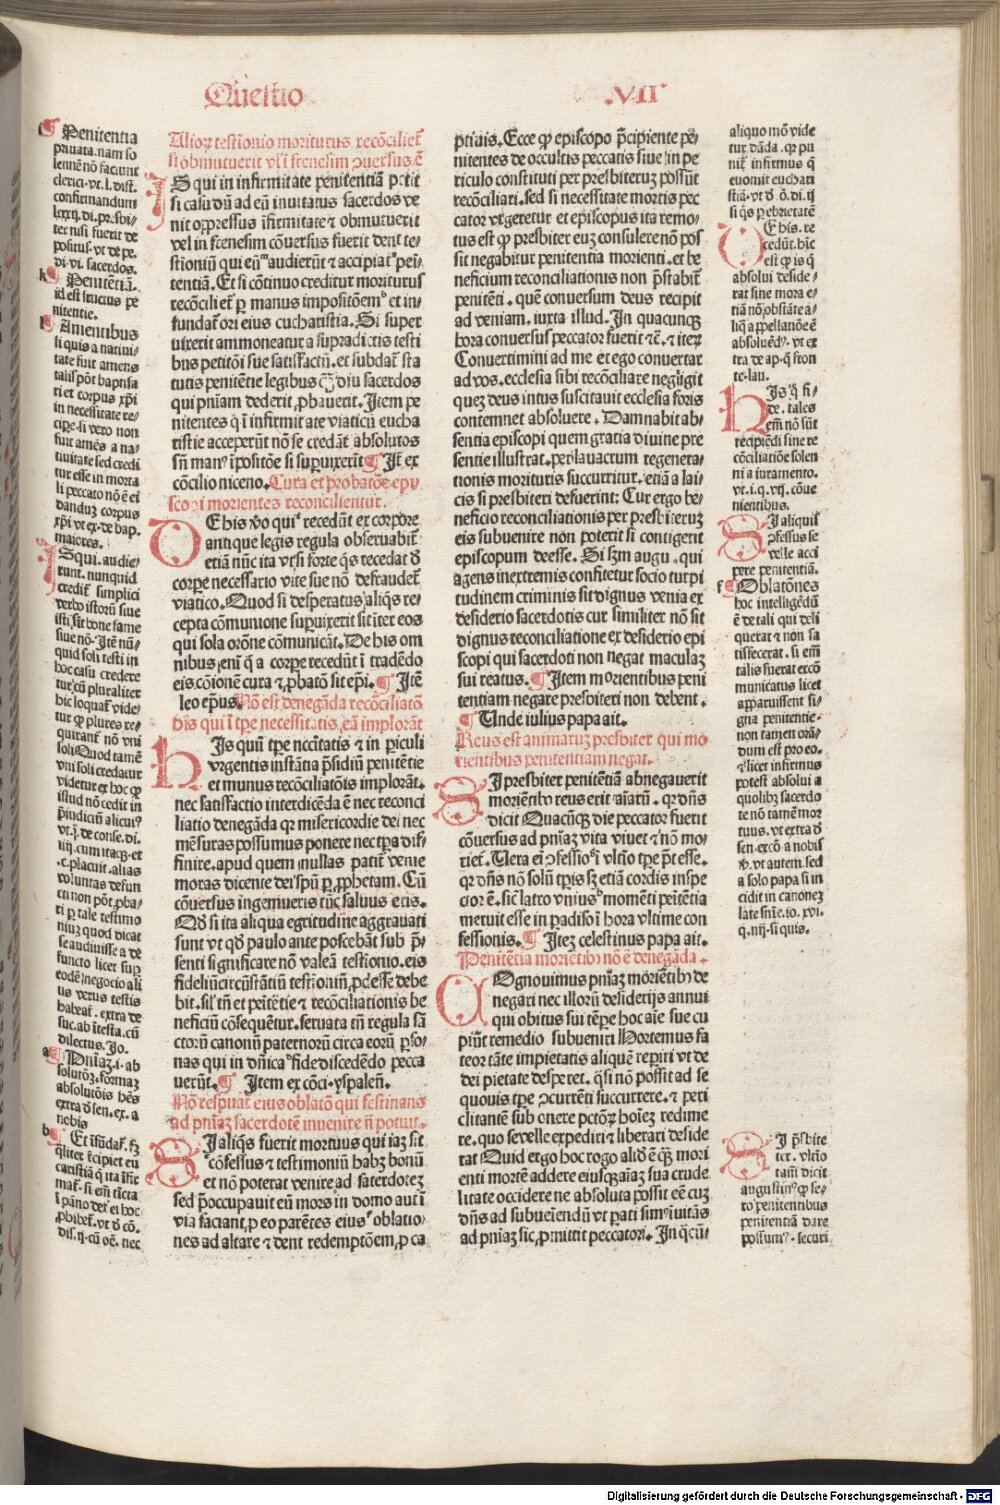 Questio VII
Penitentia
priuata. nam so
lennē nō faciunt
clerici. vt. l. dist.
confirmandum
lxxxij. di. presbi
ter nisi fuerit de
positus. vt de pe.
di. vi. sacerdos.
Penitētiā.
id est fructus pe
nitentie.
Amentibus
si quis a natiui
tate fuit amens
talis pōt baptisa
ri et corpus xp̄i
in necessitate re
cipe. si vero non
fuit amēs a na
tiuitate sed credi
tur esse in morta
li peccato nō ē ei
dandum corpus
xp̄i vt ex. de bap.
maiores.
IS qui. audie
runt. nunquid
credit̄ simplici
verbo istorū siue
isti sit bone fame
siue nō. Itē nū
quid soli testi in
hoc casu credere
tur. cū pluraliter
hic loquat̄ vide
tur ꝙ plures re
quirant̄ nō vni
soli Quod tamē
vni soli credatur
videtur ex hoc ꝙ
istud nō cedit in
p̄iudiciū alicuiꝰ
vt. j. de conse. di.
iiij. cum itaqꝫ et
.c. placuit. alias
voluntas defun
cti non pōt ꝓba
ri per tale testimo
nium quod dicat
se audiuisse a de
functo licet sup̄
eodē negocio ali
us verus testis
habeat̄. extra de
suc. ab ītesta. cū
dilectus. Jo.
Pn̄iaꝫ .i. ab
solutōꝫ. formaꝫ
absolutōis hēs
extra d̄ sen. ex. a
nobis
Alioꝝ testīonio moriturus recōciliet̄
si obmutuerit vl̓ ī frenesim ꝯuersus ē
IS qui in infirmitate penitentiā petit
si casu dū ad eū inuitatus sacerdos ve
nit oppressus īfirmitate ⁊ obmutuerit
vel in frenesim cōuersus fuerit dent te
stīoniū qui eū audierūt ⁊ accipiat pei
tentiā. Et si cōtinuo creditur moriturus
recōciliet̄ per manus impositōem et in
fundat̄ ori eius eucharistia. Si super
uixerit ammoneatur a supradictis testi
bus petitōi sue satisfactū. et subdat̄ sta
tutis penitētie legibus qͣꝫdiu sacerdos
qui pn̄iam dederit ꝓbauerit. Item pe
nitentes qͥ ī infirmitate viaticū eucha
ristie acceperūt nō se credāt absolutos
sn̄ manꝰ īpositōe si supuixerīt ¶ Itē ex
cōcilio niceno. Cura et ꝓbatōne epi
scopi morientes reconcilientur.
DE his v̄o qui recedūt ex corpore
antique legis regula obseruabit̄
etiā nūc ita vt si forte qͥs recedat d̄
corpe necessario vite sue nō defraudet̄
viatico. Quod si desperatus aliqͥs re
cepta cōmunione supuixerit sit īter eos
qui sola orōne cōmunicāt. De his om
nibus enī qͥ a corpe recedūt ī tradēdo
eis cōionē cura ⁊ ꝓbatō sit epī. ¶ Itē
leo ep̄us. Nō est denegāda recōciliatō
his qui ī tpe necessitatis eā implorāt
HIs quī tpe nccītatis ⁊ in piculi
vrgentis instātia p̄sidiū penitētie
et munus recōciliatōis implorāt.
nec satisfactio interdicēda ē nec reconci
liatio denegāda qr misericordie dei nec
mēsuras possumus ponere nec tpa dif
finire. apud quem nullas patit̄ venie
moras dicente dei spū per ꝓphetam. Cū
cōuersus ingemueris tūc saluus eris.
Qd̄ si ita aliqua egritudine aggrauati
sunt vt qd̄ paulo ante poscebāt sub p̄
senti significare nō valeā testīonio. eis
fideliū circūstātiū testīoniū ꝓdesse debe
bit. sil̓ tn̄ et peītētie ⁊ recōciliationis be
neficiū cōsequētur. seruata tn̄ regula sā
ctorū canonū paternorū circa eorū pso
nas qui in dn̄ica fide discedēdo pecca
uerūt. ¶ Item ex cōci. yspaleñ.
Nō respuat̄ eius oblatō qui festinans
ad pn̄iaꝫ sacerdotē inuenire n̄ potuit.
SI aliqͥs fuerit mortuus qui iaꝫ sit
cōfessus ⁊ testimoniū habꝫ bonū
et nō poterat venire ad sacerdoteꝫ
sed p̄occupauit eū mors in domo aut ī
via faciant ꝓ eo parētes eius oblatio
nes ad altare ⁊ dent redemptōem ꝓ ca
ptiuis. Ecce ꝙ episcopo p̄cipiente pe
nitentes de occultis peccatis siue in pe
riculo constituti per presbiteruꝫ possūt
recōciliari. sed si necessitate mortis pec
cator vrgeretur et episcopus ita remo
tus est ꝙ presbiter euꝫ consulere nō pos
sit negabitur penitentia morienti. et be
neficium reconciliationis non p̄stabit̄
penitēti. quē conuersum deus recipit
ad veniam. iuxta illud. In quacunqꝫ
hora conuersus peccator fuerit ⁊c̄. ⁊ iteꝝ
Conuertimini ad me et ego conuertar
ad vos. ecclesia sibi recōciliare negligit
queꝫ deus intus suscitauit ecclesia foris
contemnet absoluere. Damnabit ab
sentia episcopi quem gratia diuine pre
sentie illustrat. per lauacrum regenera
tionis morituris succurritur. etiā a lai
cis si presbiteri defuerint: Cur ergo be
neficio reconciliationis per presbiteruꝫ
eis subuenire non poterit si contigerit
episcopum deesse. Si sm̄ augu. qui
agens in extremis confitetur socio turpi
tudinem criminis sit dignus venia ex
desiderio sacerdotis cur similiter nō sit
dignus reconciliatione ex desiderio epi
scopi qui sacerdoti non negat maculaꝫ
sui reatus. ¶ Item morientibus peni
tentiam negare presbiteri non debent.
¶ Unde iulius papa ait.
Reus est animaruꝫ presbiter qui mo
rientibus penitentiam negat.
SI presbiter penitētiā abnegauerit
moriētibꝰ reus erit aīarū. qr dn̄s
dicit Quacūqꝫ die peccator fuerit
cōuersus ad pn̄iaꝫ vita viuet ⁊ nō mo
riet̄. Uera eī ꝯfessio ī vltīo tpe pt̄ esse.
qr dn̄s nō solū tpis sꝫ etiā cordis inspe
ctor ē. sic latro vniusꝰ momēti peītētia
meruit esse in padiso ī hora vltime con
fessionis. ¶ Iteꝫ celestinus papa ait.
Penitētia moriētibꝰ nō ē denegāda.
AGnouimus pn̄iaꝫ moriētibꝰ de
negari nec illorū desiderijs annui
qui obitus sui tēpe hoc aīe sue cu
piūt remedio subueniri Hortemus fa
teor tāte impietatis aliquē repiri vt de
dei pietate desperet. qͣsi nō possit ad se
quouis tpe ꝯcurrēti succurrere. ⁊ peri
clitantē sub onere pctōꝝ hoīeꝫ redime
re. quo se velle expediri ⁊ liberari deside
rat Quid ergo hoc rogo aliud ē qͣꝫ mori
enti mortē addere eiusqꝫ aīaꝫ sua crude
litate occidere ne absoluta possit eē cuꝫ
dn̄s ad subueiendū vt parati simꝰ īuitās
ad pn̄iaꝫ sic ꝓmittit peccatori. In qͣcū
aliquo mō vide
tur dāda. qr pu
nit̄ infirmus qͥ
euomit euchari
stiā. vt d̄ ꝯ. di. ij
si qͥs p ebrietatē
DE his. re
cedūt. hīc
est ꝙ is qͥ
absolui deside
rat sine mora e
tiā nō obstāte a
liqͣ appellatiōe ē
absoluēdꝰ. vt ex
tra de ap. qͣ fron
te. lau.
HIs qͥ. fi
de. tales
em̄ nō sūt
recipiēdi sine re
cōciliatiōe solen
ni a iuramento.
vt. i. q. vij. cōue
nientibus.
SI aliquis
ꝯfessus se
velle acci
pere penitentiā.
Oblatōnes
hoc intelligēdū
ē de tali qui deli
querat ⁊ non sa
tisfecerat. si em̄
talis fuerat excō
municatus licet
apparuissent si
gna penitentie
non tamen orā
dum est pro eo.
⁊ licet infirmus
potest absolui a
quolibꝫ sacerdo
te nō tamē mor
tuus. vt extra d̄
sen. excō a nobis
ij. vt autem. sed
a solo papa si in
cidit in canoneꝫ
late snīe. jo. xvi.
q. iiij. si quis.
SI p̄sbite
ter. vltīo
tamē dicit
augustinꝰ ꝙ se
ro penitentibus
penitentiā dare
possumꝰ. securi